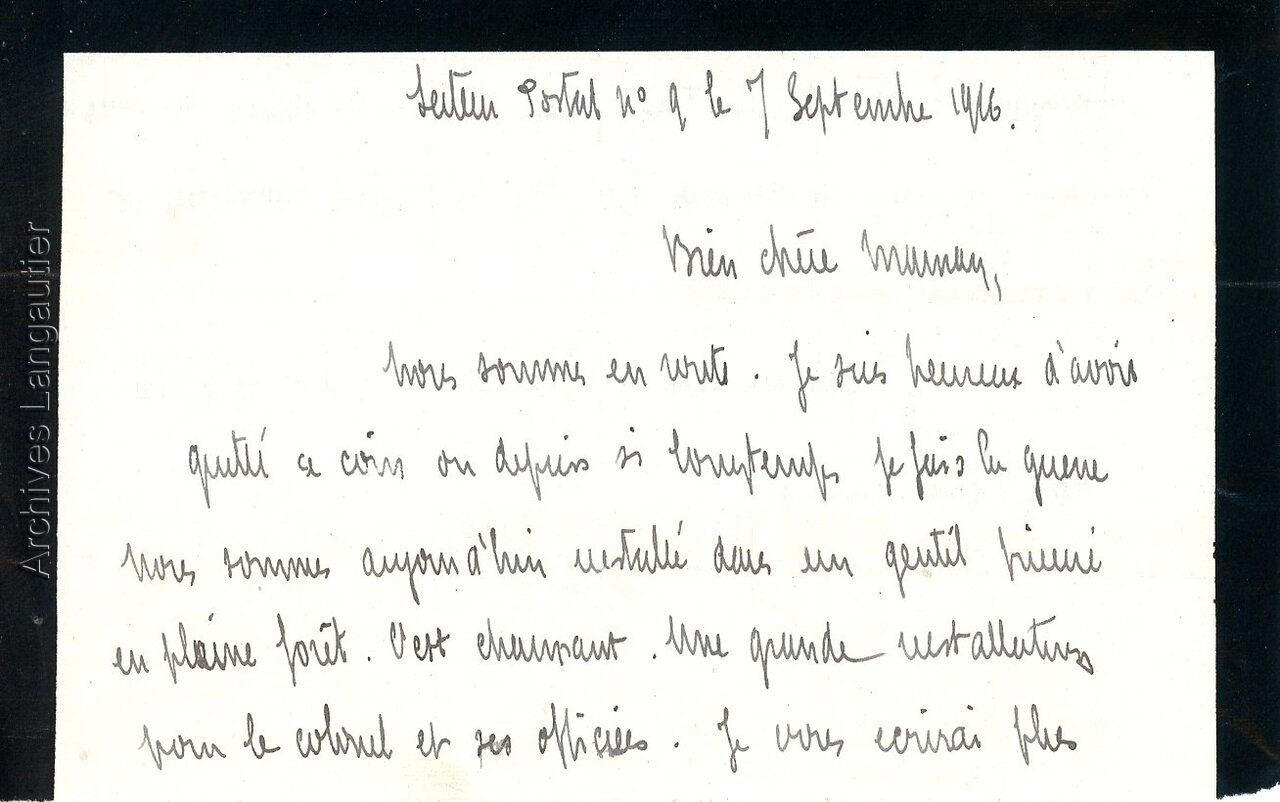 Secteur Postal n° 9 le 7 Septembre 1916.
Bien chère Maman,
Nous sommes en route. Je suis heureux d'avoir
quitté ce coin ou depuis si longtemps je fais la guerre
Nous sommes aujourd'hui installé dans un gentil
en plaine forêt. C'est charmant. Une grande installation
pour le colonel et ses officiers. Je vous ecrirai plus
Archives Langautier